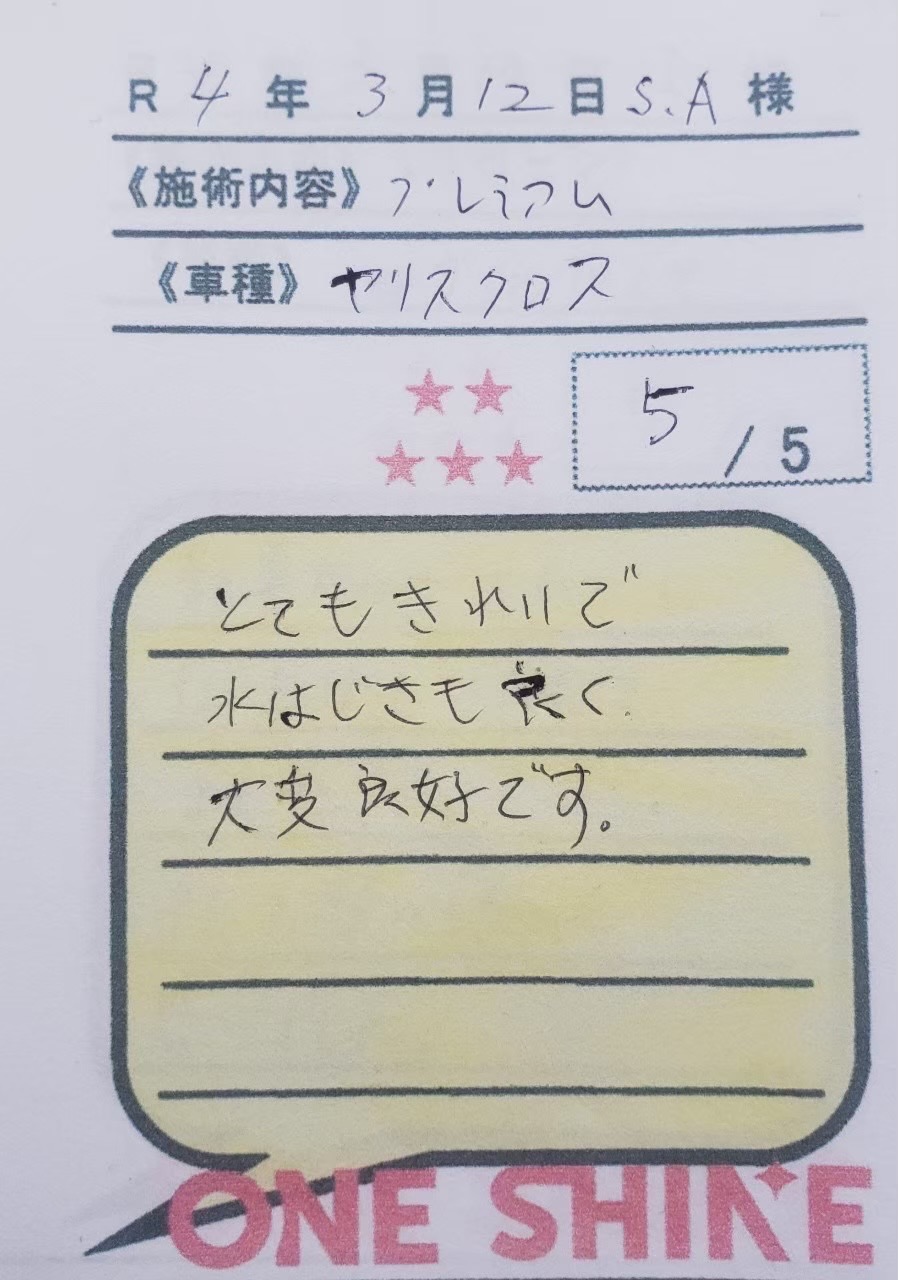 R 4 年 3 月 12 日 S.A 様
《施術内容》プレミアム
《車種》ヤリスクロス
5 / 5
とてもきれいで
水はじきも良く
大変良好です。
ONE SHINE